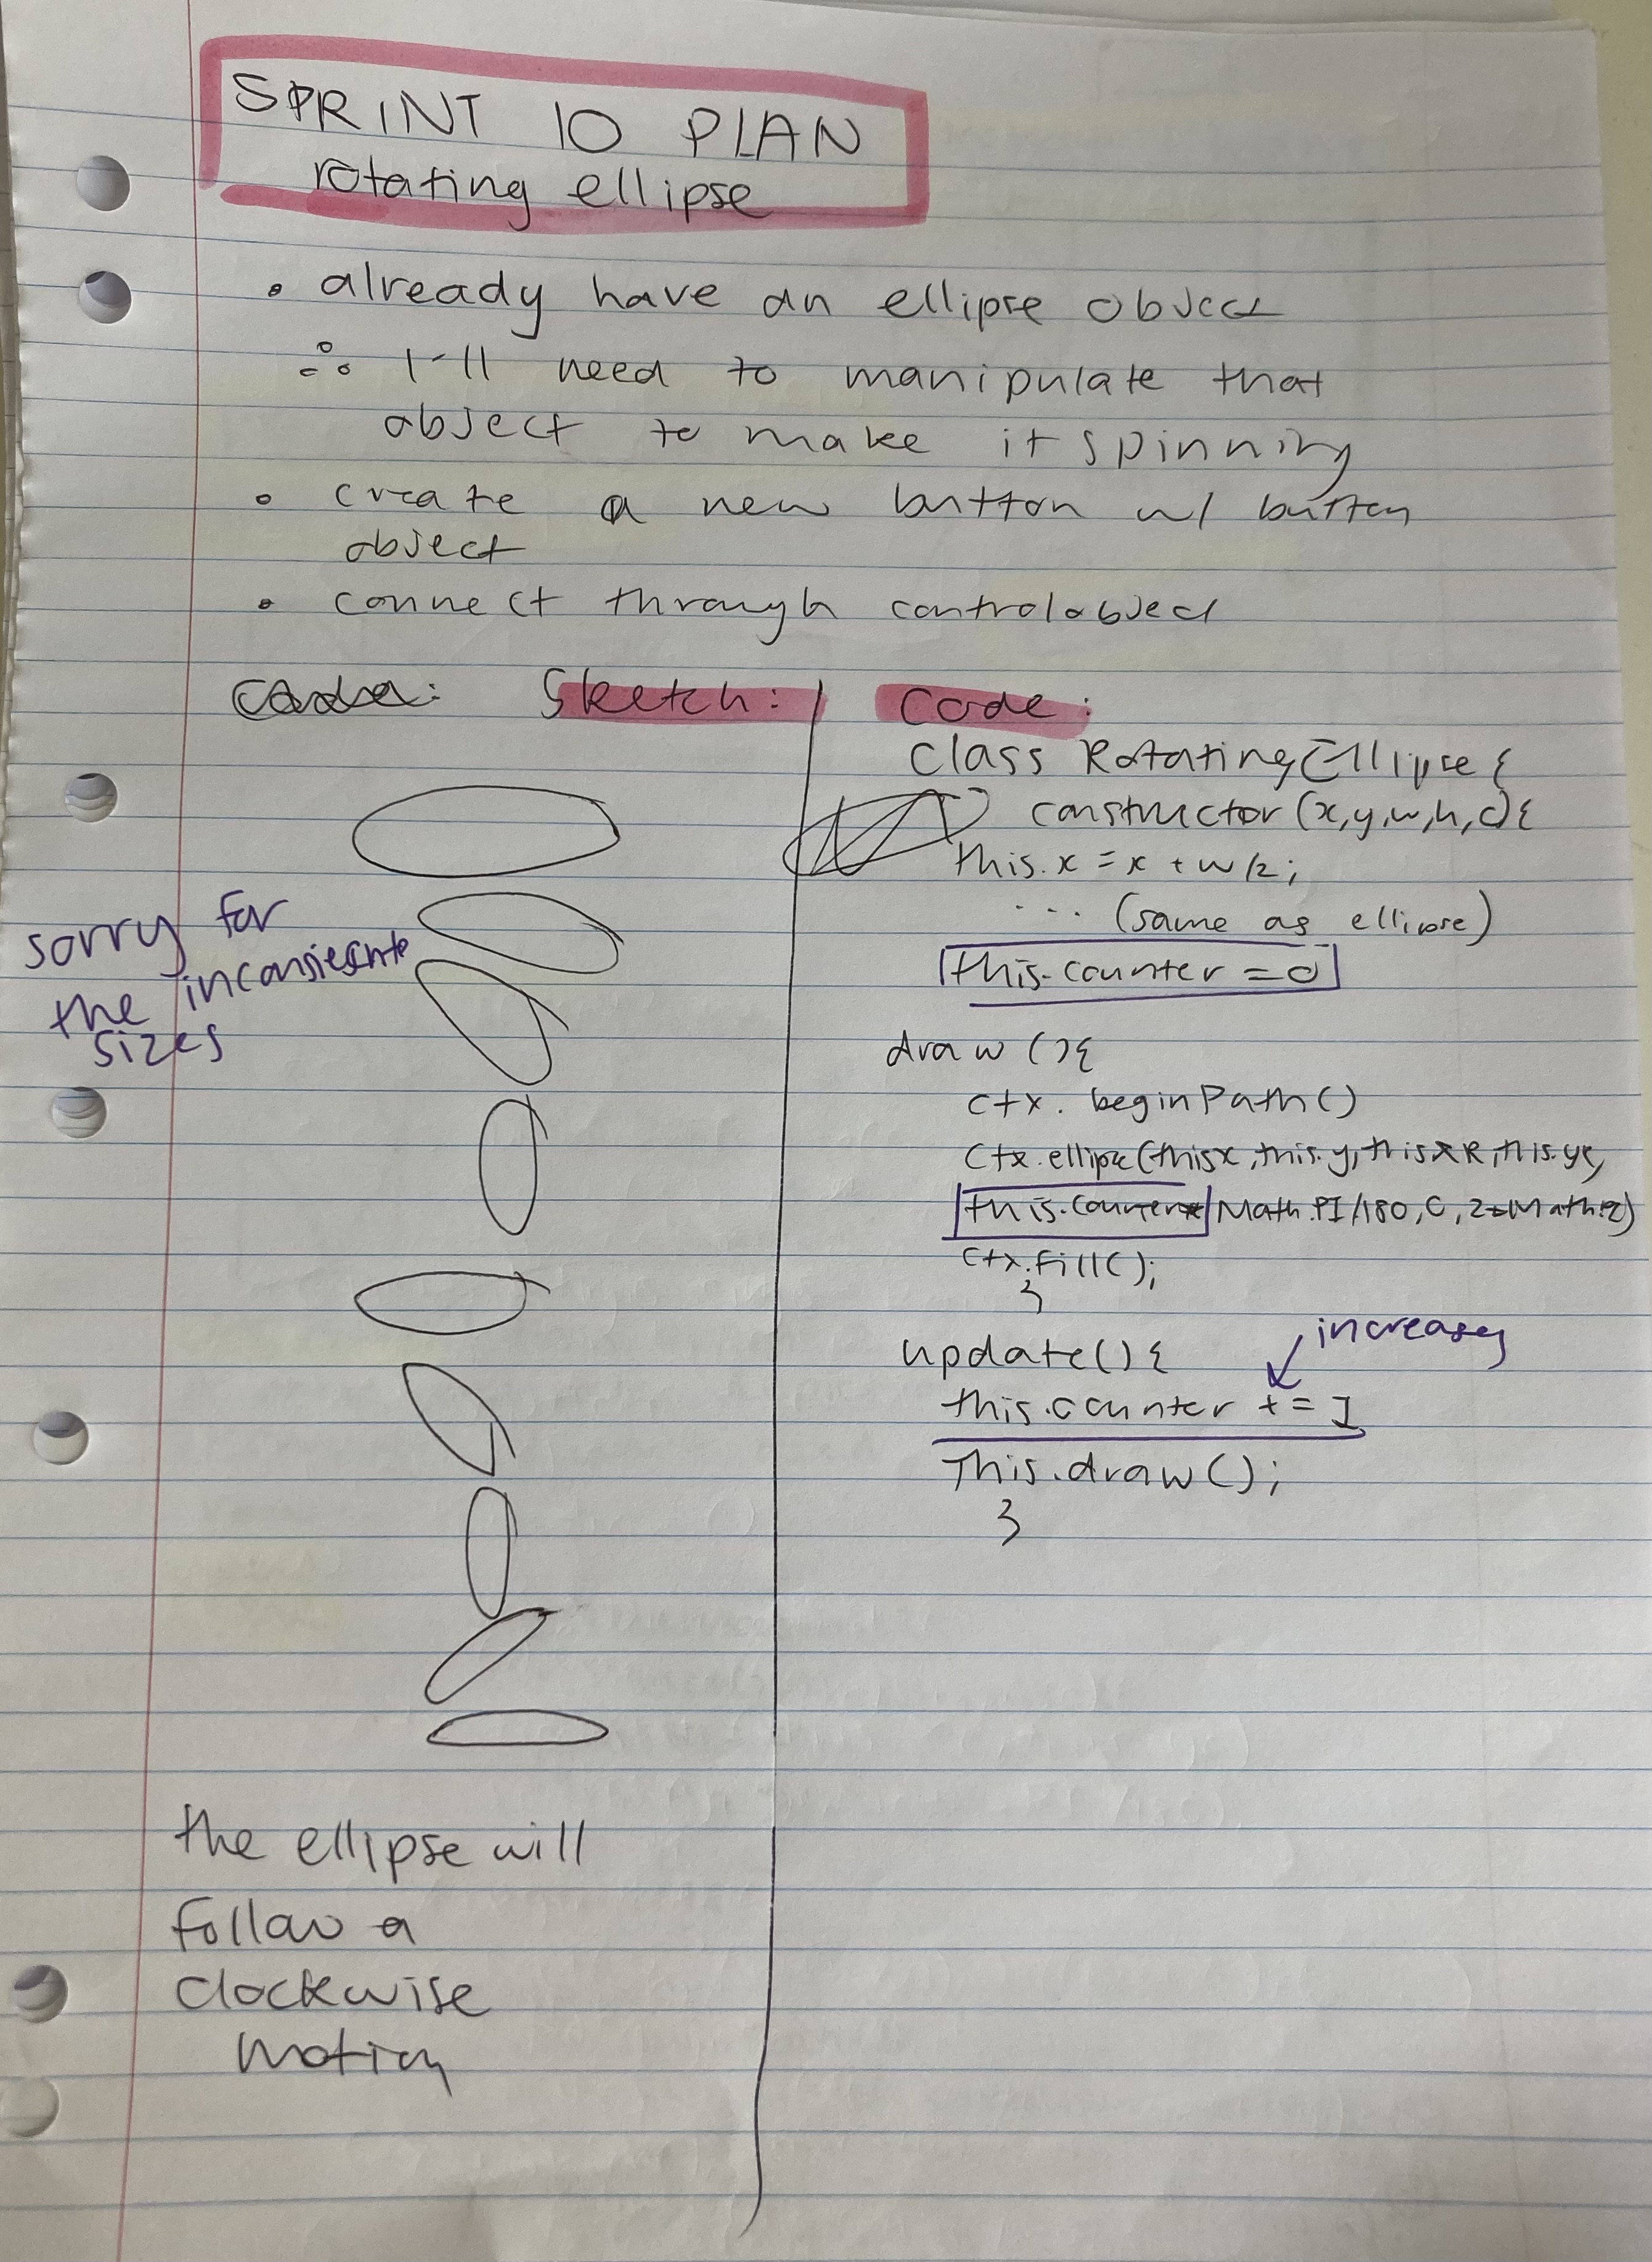 SPRINT 10 PLAN
rotating ellipse
• already have an ellipse object
∴ I'll need to manipulate that
object to make it spinning
• create a new button w/ button
object
• connect through controlobject
Sketch:
sorry for
the inconsiesnte
sizes
the ellipse will
follow a
clockwise
motion
Code:
class RotatingEllipse {
constructor (x,y,w,h,c){
this.x = x + w/2;
... (same as ellipse)
this.counter = 0
draw (){
ctx. beginPath()
ctx.ellipse(this.x, this.y, this.xR, this.yR,
this.counter* Math.PI/180, 0, 2*Math.PI)
ctx.fill();
}
update(){
increases
this.counter += 1
This.draw();
}